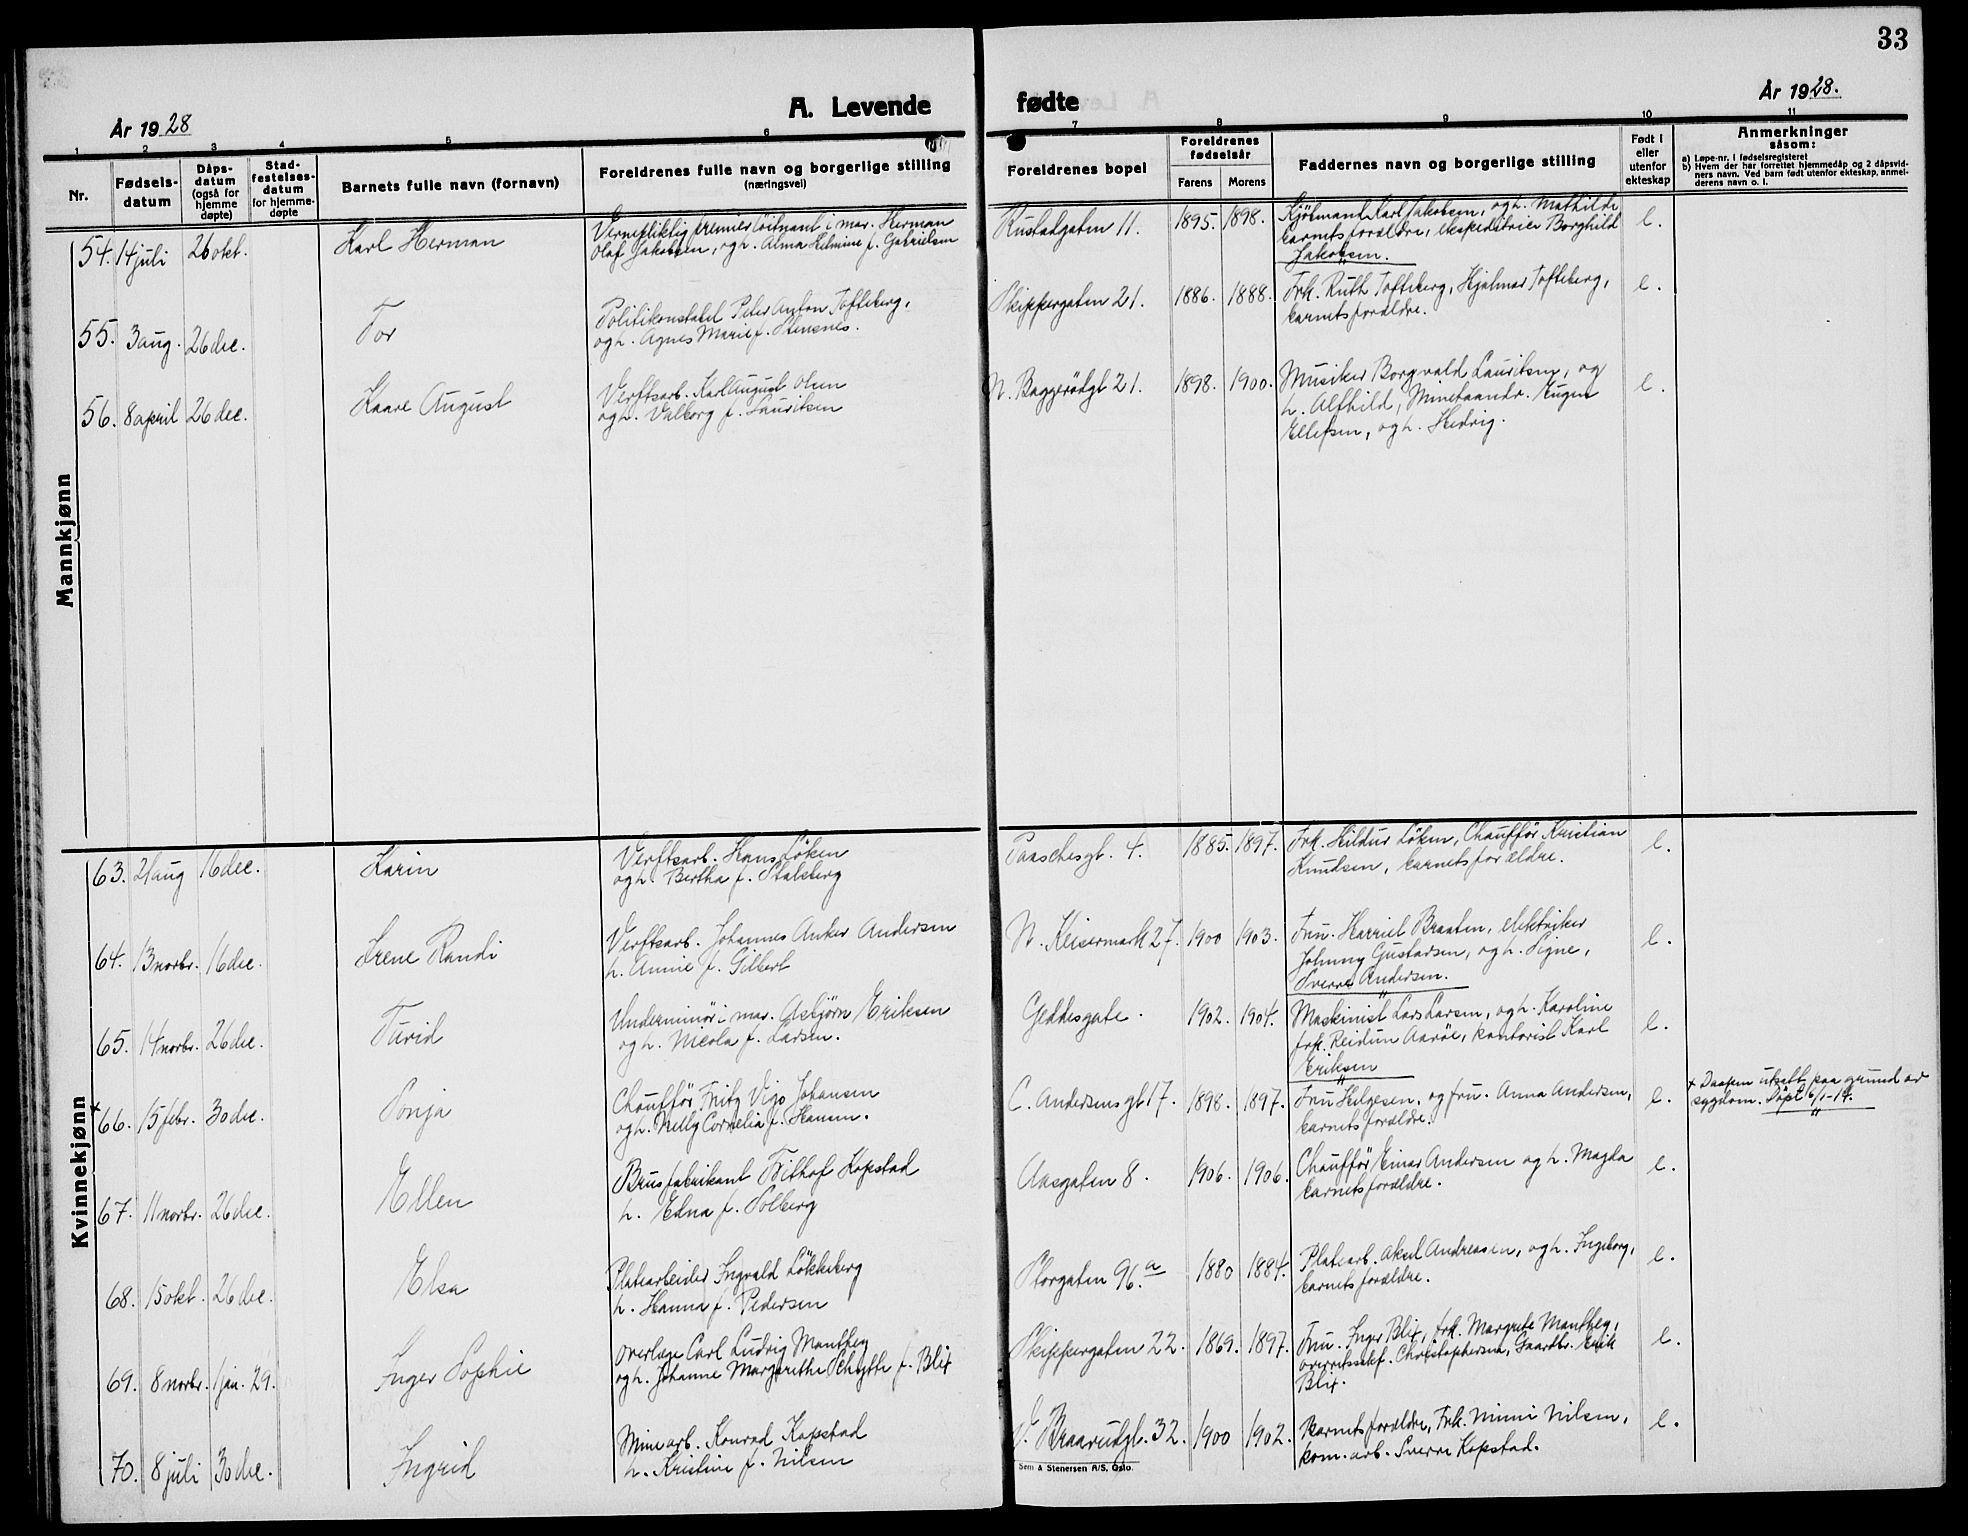 33
År 1928
A. Levende fødte
År 1928.
1 2 3 4 5 6 7 8 9 10 11
Nr.
Fødsels-
datum
Dåps-
datum
(også for
hjemme
døpte)
Stad-
festelses-
datum
for hjemme-
døpte
Barnets fulle navn (fornavn)
Foreldrenes fulle navn og borgerlige stilling
(næringsvei)
Foreldrenes bopel
Foreldrenes
fødselsår
Farens Morens
Faddernes navn og borgerlige stilling
Født i
eller
utenfor
ekteskap
Anmerkninger
såsom:
a) Løpe-nr. i fødselsregisteret
b) Hvem der har forrettet hjemmedåp og 2 dåpsvid-
ners navn. Ved barn født utenfor ekteskap, anmel-
derens navn o. l.
Mannkjønn
54. 14 juli 26 okt. Karl Herman
Vernepliktig premierløitnant i mar. Herman
Olaf Jakobsen, og h. Alma Helmine f. Gabrielsen
Rustadgaten 11. 1895. 1898.
Kjöbmand Karl Jakobsen, og h. Mathilde
barnets forældre, ekspeditrice Borghild
Jakobsen.
e.
55. 3 aug. 26 dec. Tor
Politikonstabel Peter Anton Tofteberg,
og h. Agnes Marie f. Stensnes.
Skippergaten 21. 1886. 1888.
Frk. Ruth Tofteberg, Hjalmar Tofteberg,
barnets forældre.
e.
56. 8 april 26 dec. Kaare August
Verftsarb. Karl August Olsen
og h. Valborg f. Lauritsen
N. Baggerödgt 21. 1898. 1900.
Musiker Borgvald Lauritsen, og
h. Alfhild, Minebaandr. Eugen
Ellefsen, og h. Hedvig.
e.
Kvinnekjønn
63. 21 aug 16 dec. Karin
Verftsarb. Hans Löken
og h. Bertha f. Stalsberg
Paaschesgt. 4. 1885. 1897.
Frk. Hildur Löken, Chauffør Kristian
Knudsen, barnets forældre.
e.
64. 13 novbr. 16 dec. Irene Randi
Verftsarb. Johannes Anker Andersen
h. Annie f. Gilbert
N. Keisermark 27. 1900 1903.
Fru. Harriet Braaten, elektriker
Johnny Gustavsen, og h. Signe,
Sverre Andersen.
e.
65. 14 novbr. 26 dec. Turid
Underminör i mar. Asbjørn Eriksen
og h. Nicola f. Larsen.
Geddesgate. 1902. 1904.
Maskinist Lars Larsen, og h. Karoline
frk. Reidun Aarøe, kontorist Karl
Eriksen
e.
x 66. 15 febr. 30 dec. Sonja
Chauffør Fritz Vigo Johansen
og h. Nelly Cornelia f. Hansen.
C. Andersens gt 17. 1898. 1897.
Fru Helgesen, og fru. Anna Andersen,
barnets forældre.
e.
x Daapen utsatt paa grund av
sygdom. Döpt 6/1-14.
67. 11 novbr. 26 dec. Ellen
Brusfabrikant Frithof Kopstad
h. Edna f. Solberg
Aasgaten 8. 1906. 1906.
Chauffør Einar Andersen og h. Magda
barnets forældre.
e.
68. 15 okt. 26 dec. Elsa
Platearbeider Ingvald Løkkeberg
h. Hanna f. Pedersen
Storgaten 96.a 1880 1884.
Platearb. Aksel Andreasen, og h. Ingeborg,
barnets forældre.
e.
69. 8 novbr. 1 jan. 29. Inger Sophie
Overlæge Carl Ludvig Manthey
og h. Johanne Margarethe Schytte f. Blix
Skippergaten 22. 1869. 1897.
Fru. Inger Blix, frk. Margrete Manthey,
overretssakf. Christophersen, Gaardbr. Erik
Blix.
e.
70. 8 juli 30 dec. Ingrid
Minearb. Konrad Kopstad
h. Kristine f. Nilsen
V. Braarudgt. 32. 1900 1902.
Barnets forældre, Frk. Mimi Nilsen,
kom. arb. Sverre Kopstad.
e.
Sem & Stenersen A/S, Oslo.